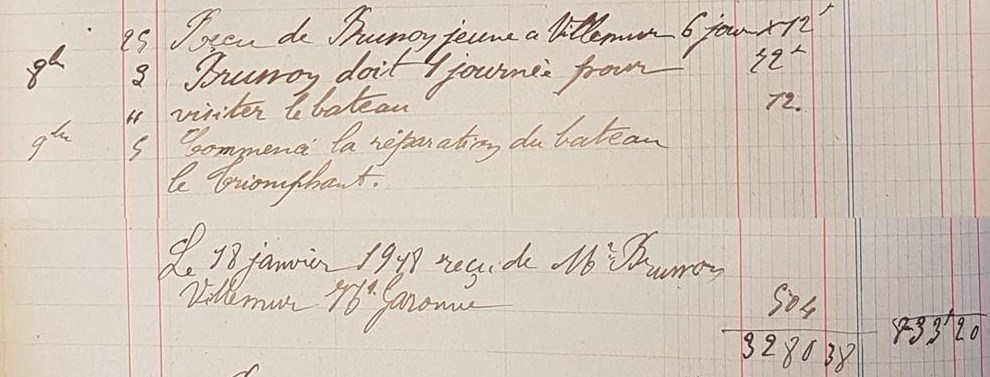 " 25 Reçu de Brusson jeune a Villemur 6 jour x 12f
9bre 3 Brusson doit 1 journée pour 72f
" visiter le bateau 12.
9bre 5 Commencé la réparation du bateau
le triomphant.
Le 18 janvier 1918 reçu de Mr Brusson
Villemur Hte Garonne 504
3280 38 833f 20